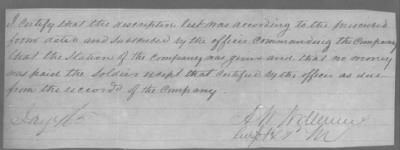 I certify that the description list was according to the prescribed
form dated and subscribed by the officer Commanding the Company
that the Station of the Company was given and that no money
was paid the Soldier except that certified by the officer as due
from the records of the Company
A W